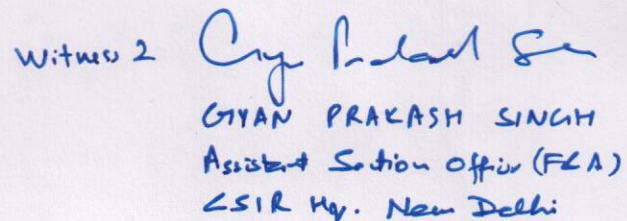 Witness 2 Gyan Prakash Singh
GYAN PRAKASH SINGH
Assistant Section Officer (F&A)
CSIR Hq. New Delhi